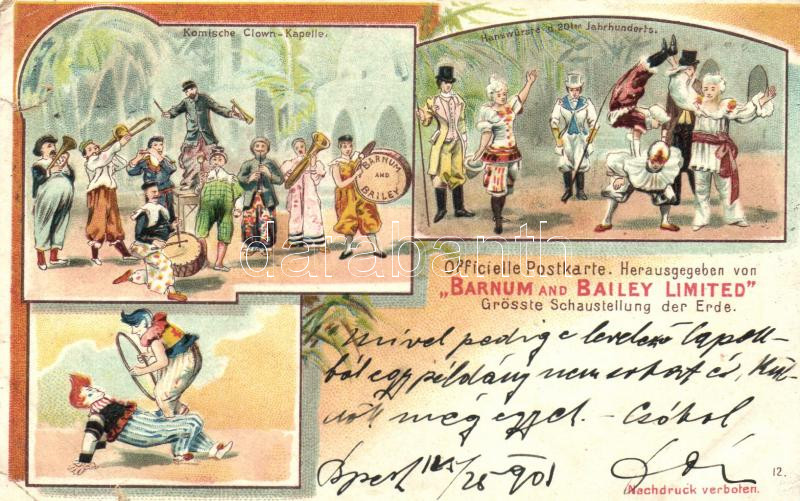 Komische Clown-Kapelle.
Hanswürste d. 20ten Jahrhunderts.
BARNUM
AND
BAILEY
darabanth
Officielle Postkarte. Herausgegeben von
„BARNUM AND BAILEY LIMITED”
Grösste Schaustellung der Erde.
Mivel pedig e levelező lapok-
ból egy példány nem sokat ér, kül-
dök még egyet. – Csókol
Bpest 25 901
12.
Nachdruck verboten.